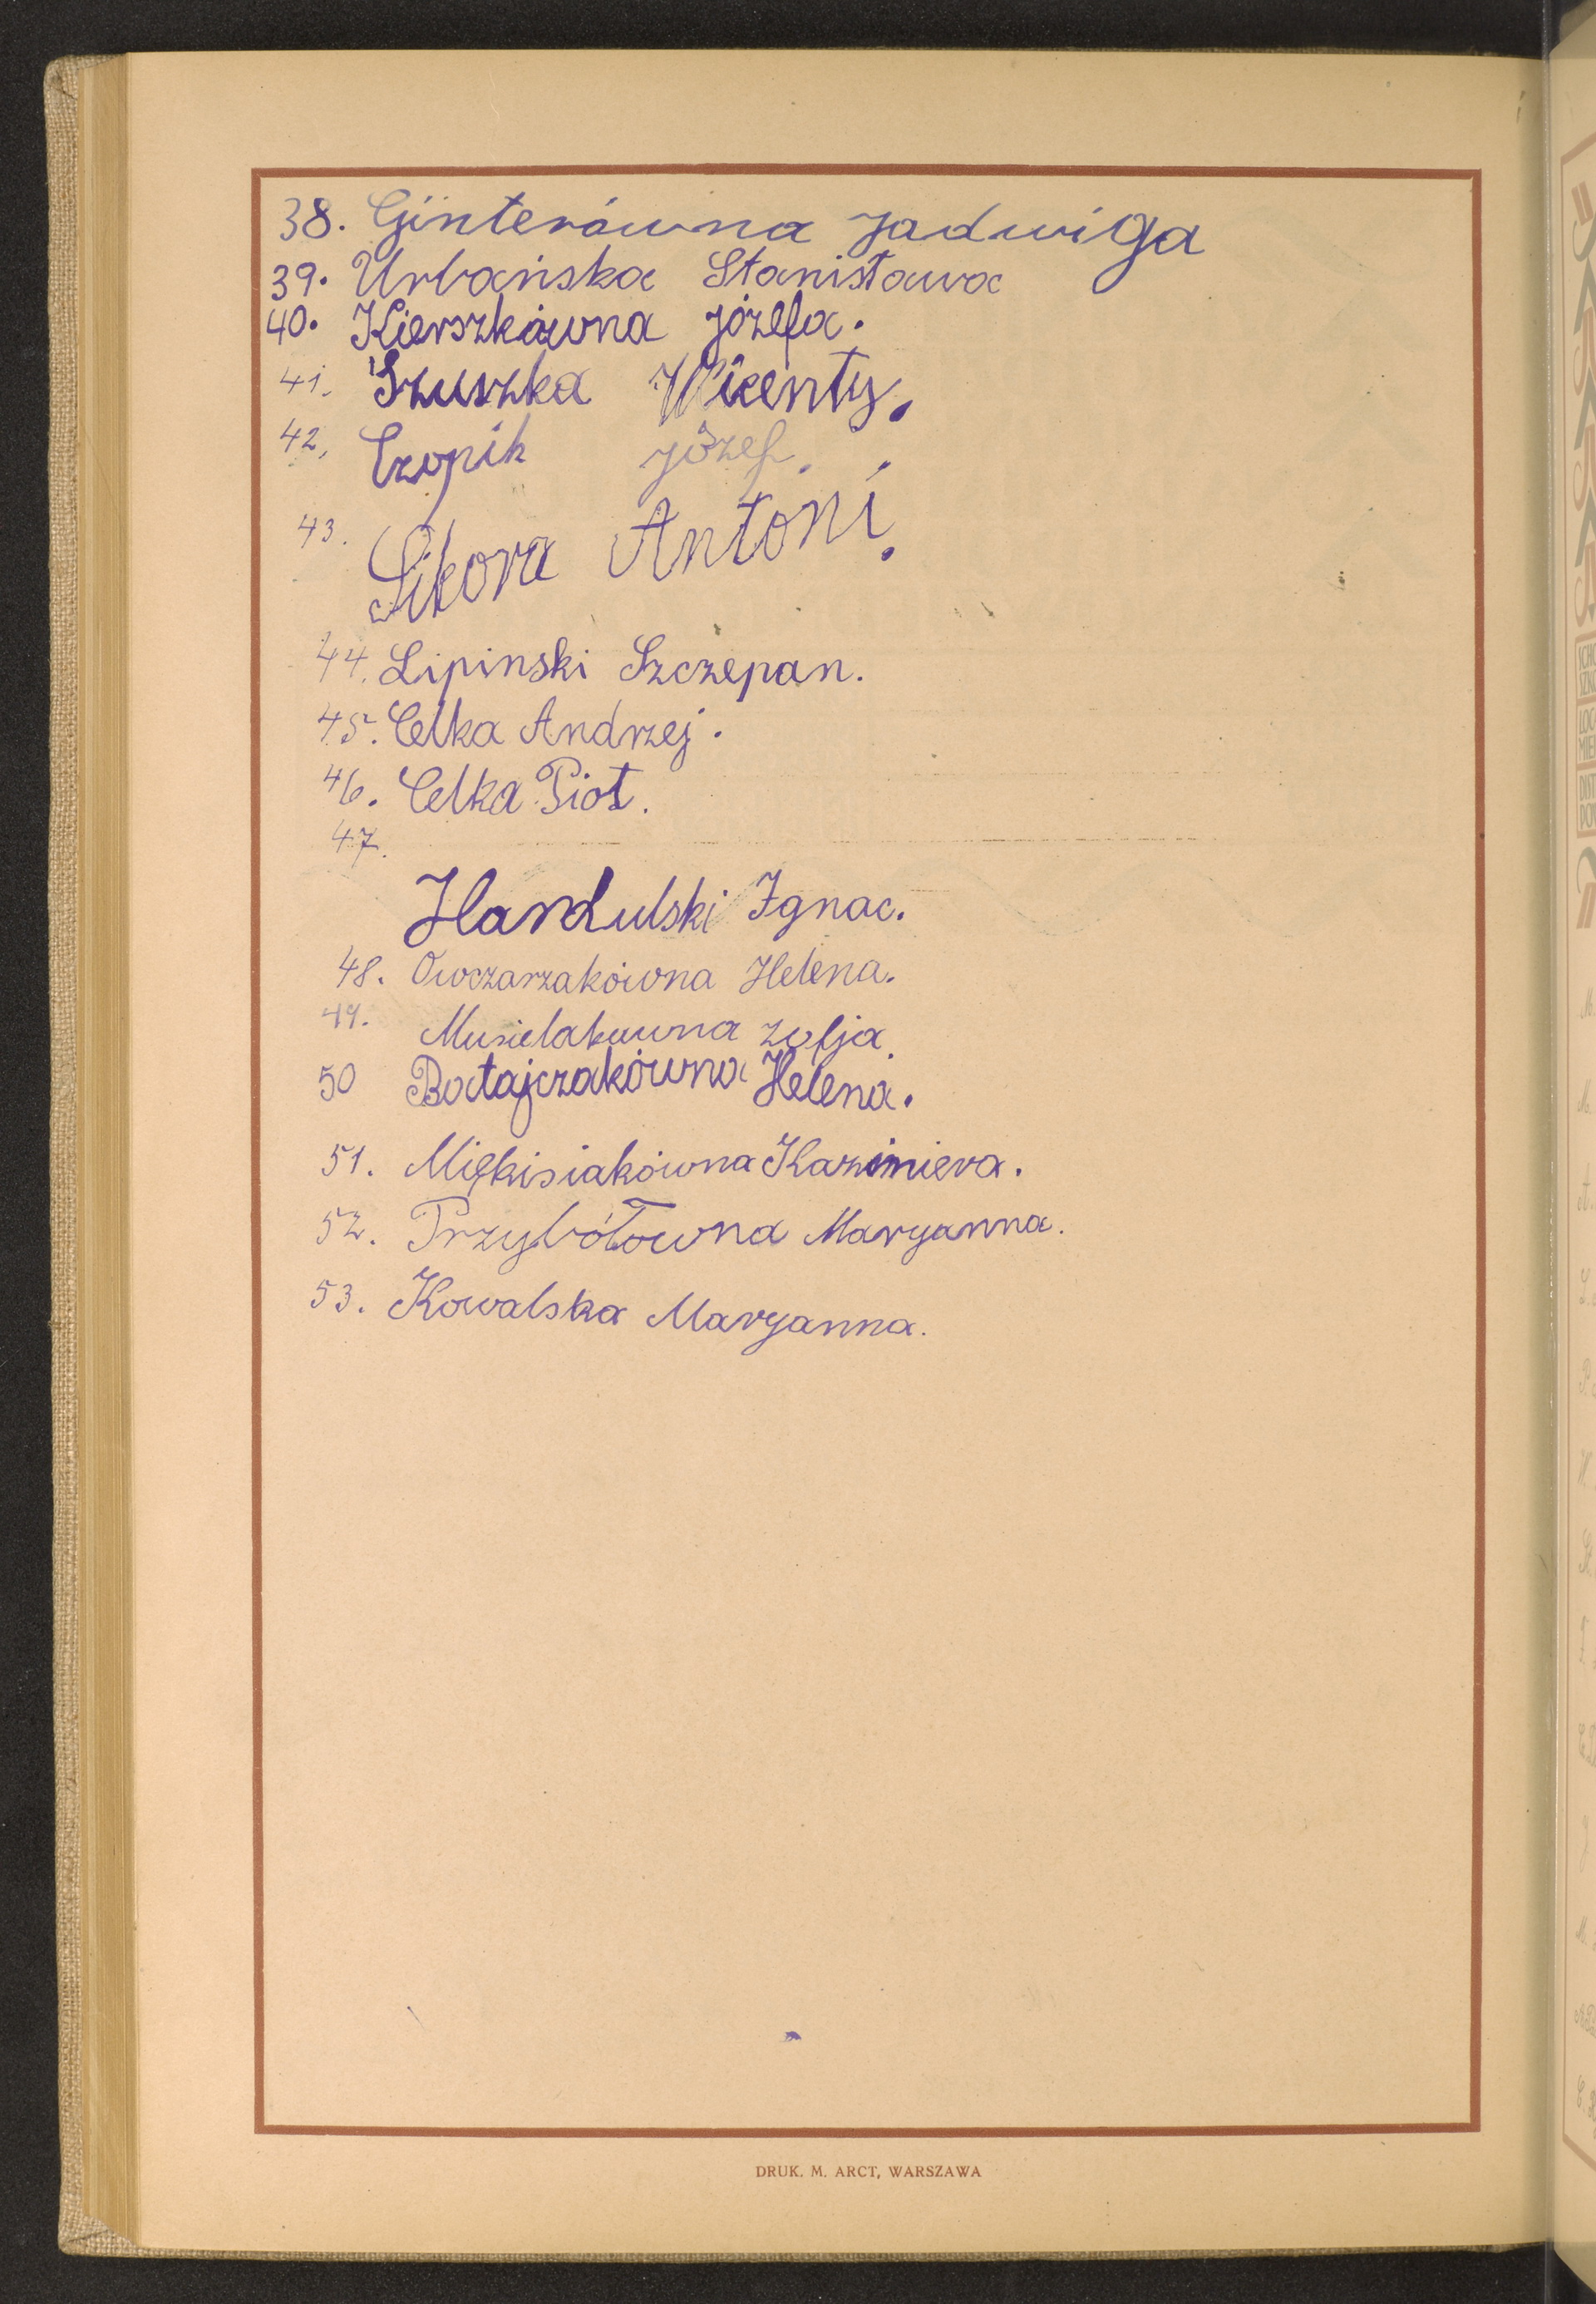 38. Ginterówna Jadwiga
39. Urbańska Stanisława
40. Kierszkówna Józefa.
41. Szuszka Wicenty.
42, Czopik Józef.
43. Sikora Antoni.
44. Lipinski Szczepan.
45. Celka Andrzej.
46. Celka Piot.
47.
Handulski Ignac.
48. Owczarzakówna Helena.
49. Musielakuwna Zofja.
50 Batajczakówna Helena.
51. Miękisiakówna Kazimiera.
52. Przybółowna Maryanna.
53. Kowalska Maryanna.
DRUK. M. ARCT, WARSZAWA